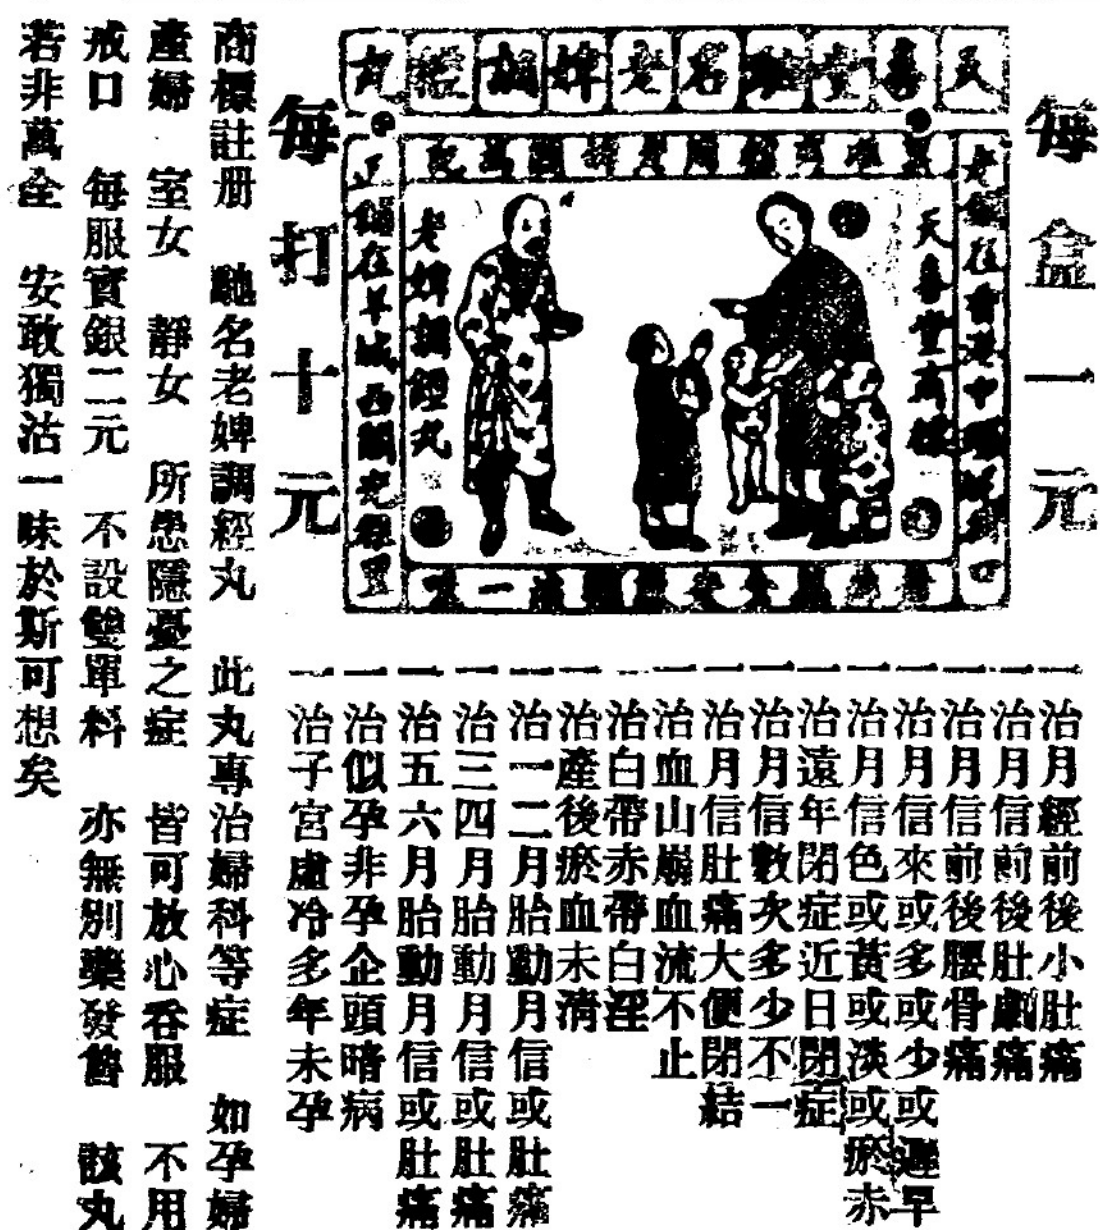 每盒一元
天喜堂馳名老婢調經丸
老舖在香港中環
天喜堂商標
老婢調經丸
正舖在羊城西關光雅里
每打十元
一治月經前後小肚痛
一治月信前後肚劇痛
一治月信前後腰骨痛
一治月信來或多或少或遲早
一治月信色或黃或淡或瘀赤
一治遠年閉症近日閉症
一治月信數次多少不一
一治月信肚痛大便閉結
一治血山崩血流不止
一治白帶赤帶白淫
一治產後瘀血未清
一治一二月胎動月信或肚痛
一治三四月胎動月信或肚痛
一治五六月胎動月信或肚痛
一治似孕非孕企頭暗病
一治子宮虛冷多年未孕
商標註册 馳名老婢調經丸 此丸專治婦科等症 如孕婦
產婦 室女 靜女 所患隱憂之症 皆可放心吞服 不用
戒口 每服實銀二元 不設雙單料 亦無別藥發售 該丸
若非萬全 安敢獨沽一味於斯可想矣